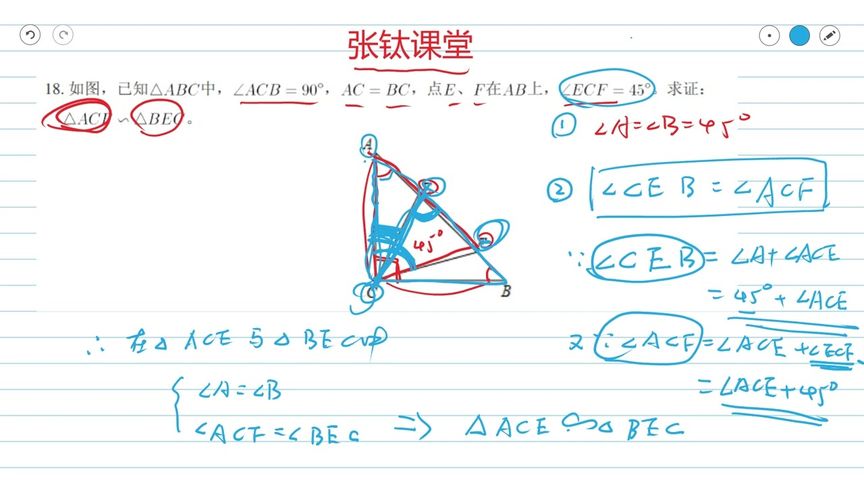 张钛课堂
18. 如图，已知△ABC中，∠ACB = 90°，AC = BC，点E、F在AB上，∠ECF = 45°. 求证：
△ACF ∽ △BEC。
① ∠A=∠B=45°
② ∠CEB = ∠ACF
∵ ∠CEB = ∠A+∠ACE
= 45° + ∠ACE
又∵ ∠ACF = ∠ACE + ∠ECF
= ∠ACE + 45°
A
45°
C
B
∴ 在△ ACE 与 △ BEC中
{ ∠A=∠B
∠ACF = ∠BEC ⇒ △ ACE ∽ △ BEC